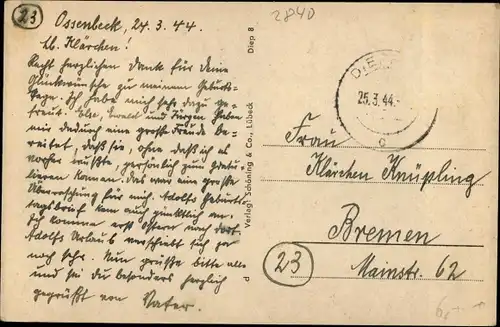 23
Ossenbeck, 24.3.44.
Lb. Klärchen!
Recht herzlichen Dank für deine
Glückwünsche zu meinem Geburts-
tage. Ich habe mich sehr dazu ge-
freut. Else, Ewald und Jürgen haben
mir dadurch eine große Freude be-
reitet, daß sie, ohne daß ich es
vorher wußte, persönlich zum Gratu-
lieren kamen. Das war eine große
Überraschung für mich. Adolfs Geburts
tagsbrief kam auch pünktlich an.
Ich komme erst Ostern nach dort
Adolfs Urlaub verschiebt sich ja
noch sehr. Nun grüße bitte alle
und sei du besonders herzlich
gegrüßt von Vater.
Verlag: Schöning & Co., Lübeck
Diep 8
2840
25.3.44.
c
Frau
Klärchen Knüpling
Bremen
23
Mainstr. 62